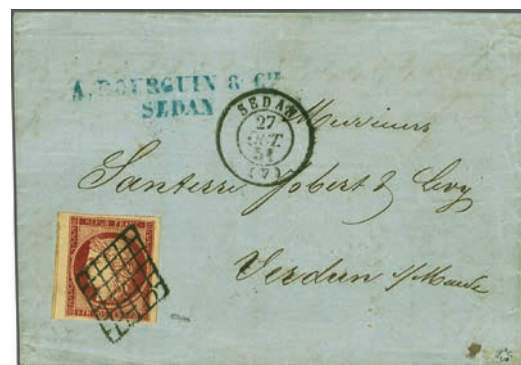 A. BOURGUIN & Cie
SEDAN
SEDAN
27
OCT
51
(7)
Messieurs
Santerre Jobert & Levy
Verdun s/Meuse
REPUB. FRANC.